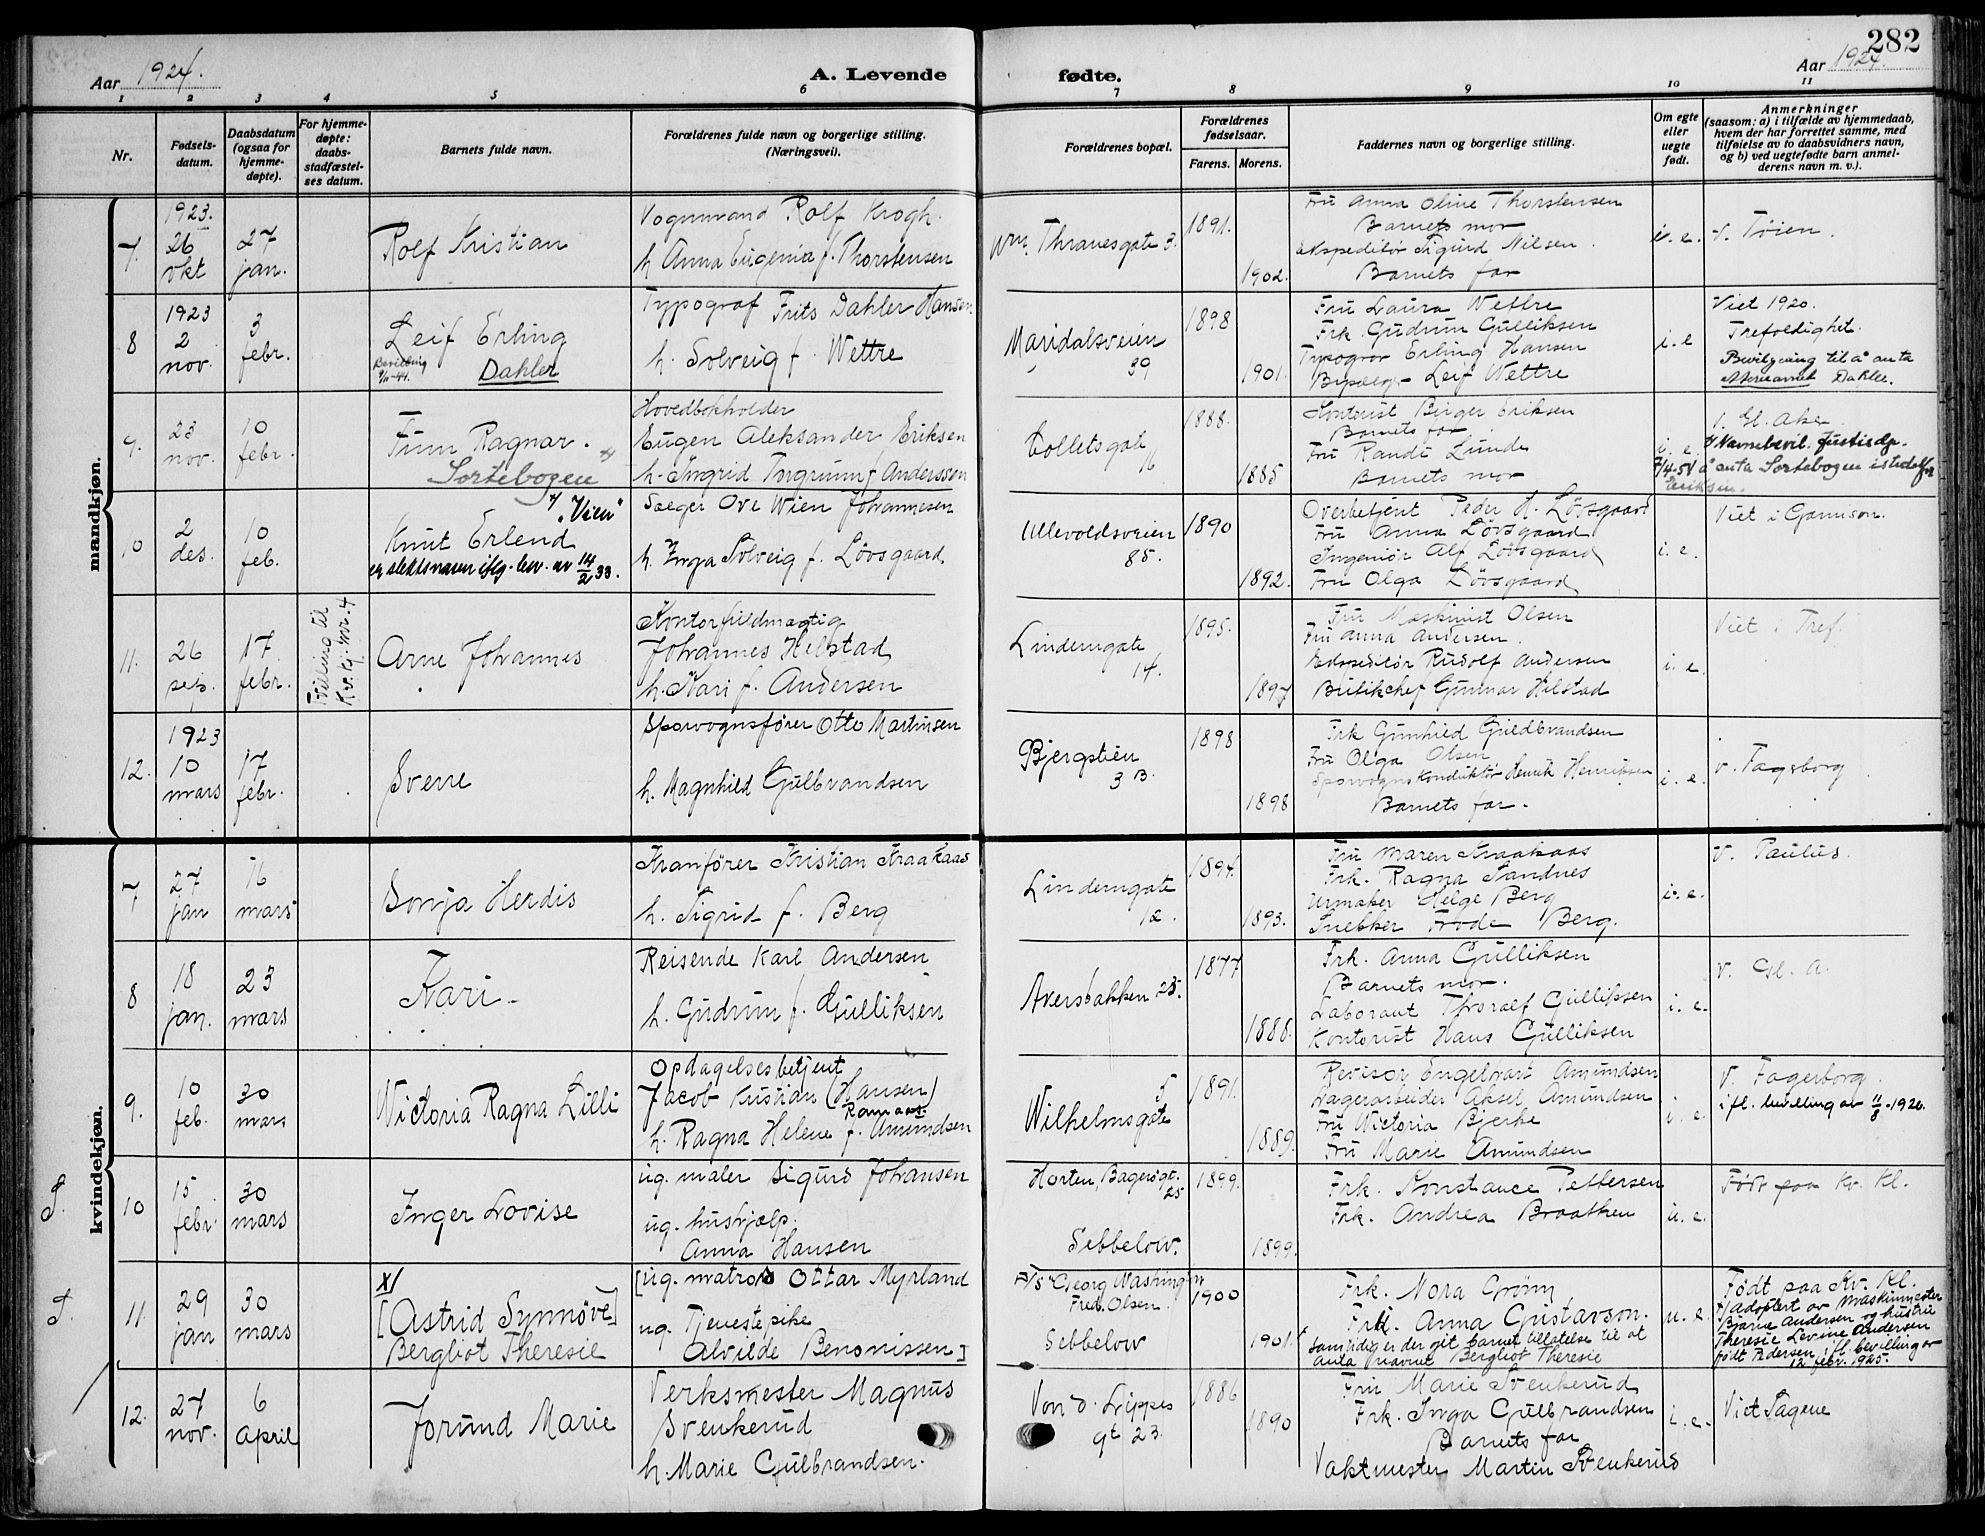 282
Aar 1924.
A. Levende fødte.
Aar 1924.
1 2 3 4 5 6 7 8 9 10 11
Nr.
Fødsels-
datum.
Daabsdatum
(ogsaa for
hjemme-
døpte).
For hjemme-
døpte:
daabs-
stadfæstel-
ses datum.
Barnets fulde navn.
Forældrenes fulde navn og borgerlige stilling.
(Næringsvei).
Forældrenes bopæl.
Forældrenes
fødselsaar.
Farens. Morens.
Faddernes navn og borgerlige stilling.
Om egte
eller
uegte
født.
Anmerkninger
(saasom: a) i tilfælde av hjemmedaab,
hvem der har forrettet samme, med
tilføielse av to daabsvidners navn,
og b) ved uegtefødte barn anmel-
derens navn m. v.).
mandkjøn.
7.
1923.
26
okt
27
jan.
Rolf Kristian
Vognmand Rolf Krogh.
h. Anna Eugenia f. Thorstensen
Wm. Thranesgate 3.
1891.
1902.
Fru Anna Oline Thorstensen
Barnets mor
ekspeditør Sigurd Nilsen.
Barnets far
i. e.
v. Tøien.
8
1923
2
nov.
3
febr.
Leif Erling
Bevilling
Dahler
Typograf Frits Dahler Hansen
h. Solveig f. Wettre
Maridalsveien
39
1898
1901.
Fru Laura Wettre
Frk. Gudrun Gulliksen
Typograf Erling Hansen
Leif Wettre
i. e
Viet 1920.
Trefoldighet.
Bevilgning til å anta
Dahler.
9.
23
nov.
10
febr.
Finn Ragnar.
Sortebogen
Hovedbokholder
Eugen Aleksander Eriksen
h. Ingrid Torgrunn f. Anderssen
Colletsgate
16
1888.
1885
Kontorist Birger Eriksen
Barnets far
Fru Randi Lunde
Barnets mor
i. e.
v. Gl. Aker
Navnebevil. Justisdp.
7/4-51 å anta Sortebogen istedetfor
Eriksen.
10
2
des.
10
feb.
"Vien"
Knut Erland
er slektsnavn iflg. bev. av 14/2 33.
Ove Wien Johannesen
h. Inga Solveig f. Løvsgaard
Ullevoldsveien
85.
1890
1892.
Overbetjent Peder H. Løvsgaard
Fru Anna Løvsgaard
Ingeniør Alf Løvsgaard
Fru Olga Løvsgaard
i. e.
Viet i Garnison.
11.
26
sep.
17
febr.
Tvilling til
Kv.kj. nr. 4
Arne Johannes
Kontorfuldmægtig
Johannes Helstad
h. Kari f. Andersen
Linderngate
14.
1895.
1897
Fru Maskinist Olsen
Fru Anna Andersen.
Ekspeditør Rudolf Andersen
Butikchef Gunnar Helstad
i. e.
Viet i Tref.
12.
1923
10
mars
17
febr.
Sverre
Sporvognsfører Otto Martinsen
h. Magnhild Gulbrandsen
Bjergstien
3 B.
1898
1898
Frk Gunhild Guldbrandsen
Fru Olga Olsen
Sporvognskonduktør Henrik Henriksen
Barnets far.
i. e.
v. Fagerborg
kvindekjøn.
7
27
jan
16
mars
Sonja Herdis
Kranfører Kristian Kraakaas
h. Sigrid f. Berg
Linderngate
12.
1894.
1893.
Fru Maren Kraakaas
Frk. Ragna Sandnes
Urmaker Helge Berg
Snekker Frode Berg.
i. e.
V. Paulus.
8
18
jan.
23
mars
Kari
Reisende Karl Andersen
h. Gudrun f. Gulliksen
Akersbakken 25.
1877
1888.
Frk. Anna Gulliksen
Barnets mor.
Laborant Thoralf Gulliksen
Kontorist Hans Gulliksen
i. e.
V. Gl. A.
9.
10
feb.
30
mars
Victoria Ragna Lilli
Opdagelsesbetjent
Jacob Kristian (Hansen)
Ramaas.
h. Ragna Helene f. Amundsen
5
Wilhelmsgate
1891.
1889.
Revisor Engelhart Amundsen
Lagerarbeider Aksel Amundsen
Fru Victoria Bjerke
Fru Marie Amundsen
i. e.
V. Fagerborg.
ifl. bevilling av 11/8-1926.
S.
10
15
febr.
30
mars
Inger Lovise
ug. maler Sigurd Johansen
ug. hushjælp.
Anna Hansen
Horten, Bagersgt.
25
Sebbelow.
1899.
1899.
Frk. Konstance Pettersen
Frk. Andrea Braathen
u. e.
Født paa Kv. Kl.
S.
11.
29
jan
30
mars
x/
[Astrid Synnøve]
Bergliot Theresie
[ug. matros Ottar Myrland
ug. Tjenestepike
Alvilde Benonissen]
F/S "Georg Washington
Fred. Olsen.
Sebbelow
1900
1901.
Frk. Nora Grønn
Frk. Anna Gustavson.
Samtidig er der git barnet tillatelse til at
anta navnet Bergliot Theresie
u. e.
Født paa Kv. Kl.
x/ adoptert av Maskinmester
Bjarne Andersen og hustru
Theresie Levine Andersen
født Pedersen ifl. bevilling av
12 febr. 1925.
12.
27
nov.
6
april
Jorund Marie
Verksmester Magnus
Svenkerud
h. Marie Gulbrandsen.
Von d. Lippes
gt 23.
1886
1890
Fru Marie Svenkerud
Frk. Inga Gulbrandsen
Barnets far
Vaktmester Martin Svenkerud
i. e.
Viet Sagene